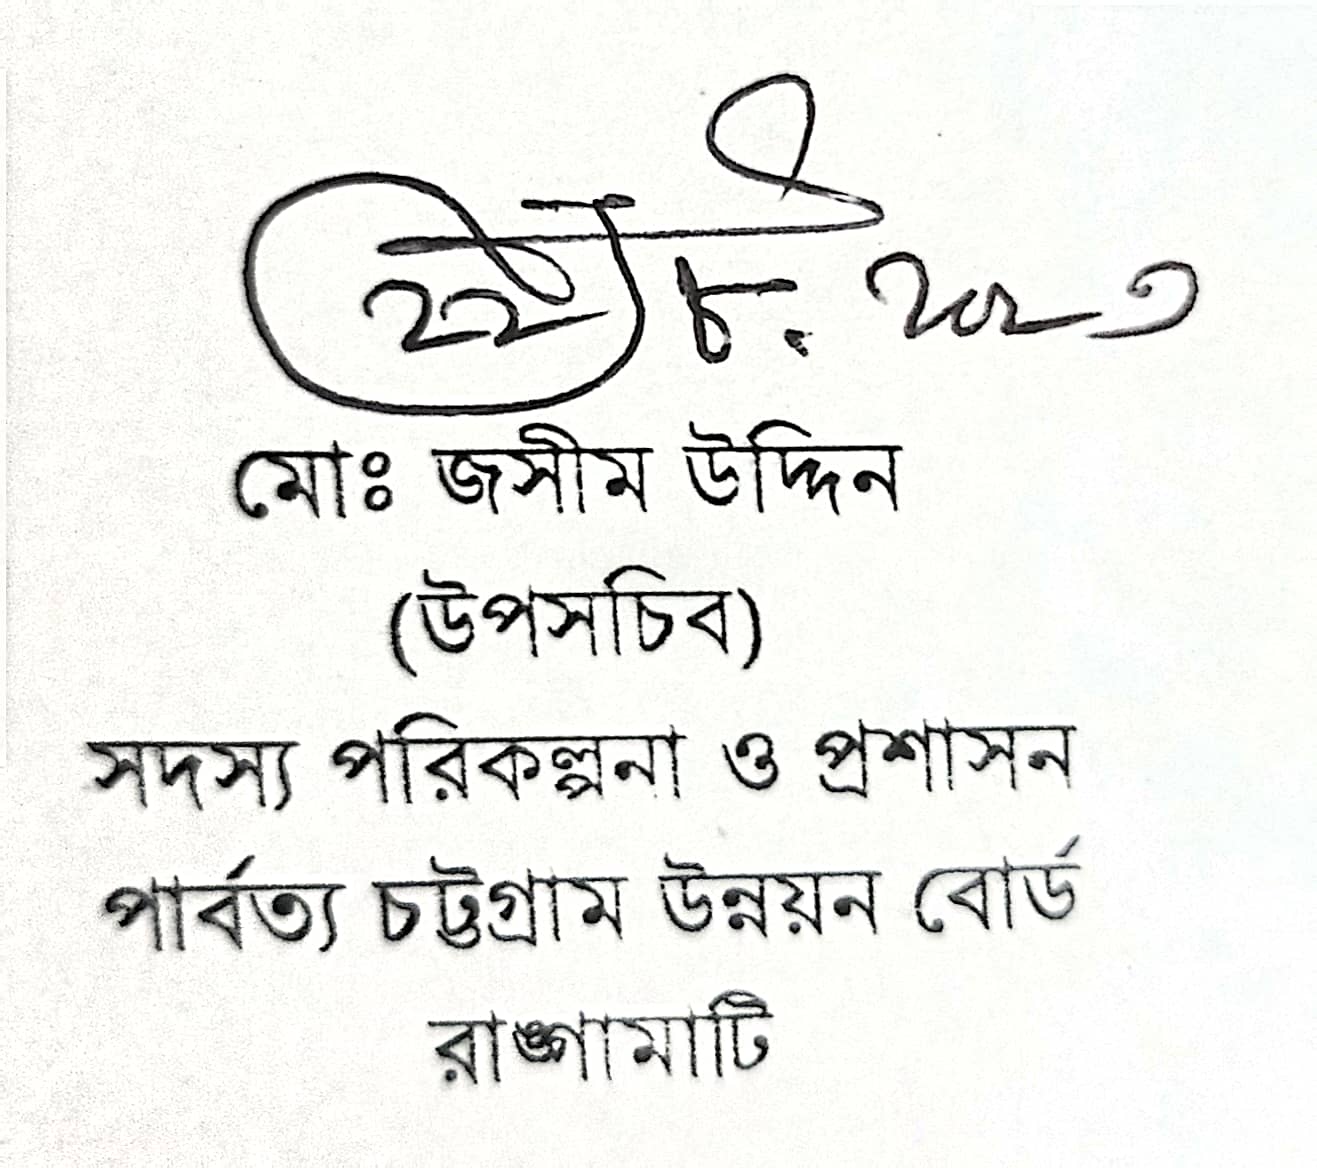 ২২ ৮. ২০২৩
মোঃ জসীম উদ্দিন
(উপসচিব)
সদস্য পরিকল্পনা ও প্রশাসন
পার্বত্য চট্টগ্রাম উন্নয়ন বোর্ড
রাঙ্গামাটি